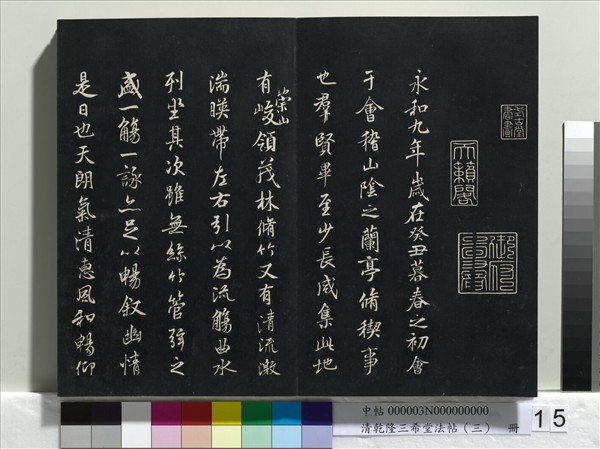 永和九年歲在癸丑暮春之初會
于會稽山陰之蘭亭脩稧事
也羣賢畢至少長咸集此地
有崇山峻領茂林脩竹又有清流激
湍暎帶左右引以為流觴曲水
列坐其次雖無絲竹管弦之
盛一觴一詠亦足以暢敘幽情
是日也天朗氣清惠風和暢仰
天籟閣
中帖 000003N000000000
清乾隆三希堂法帖（三） 冊
15